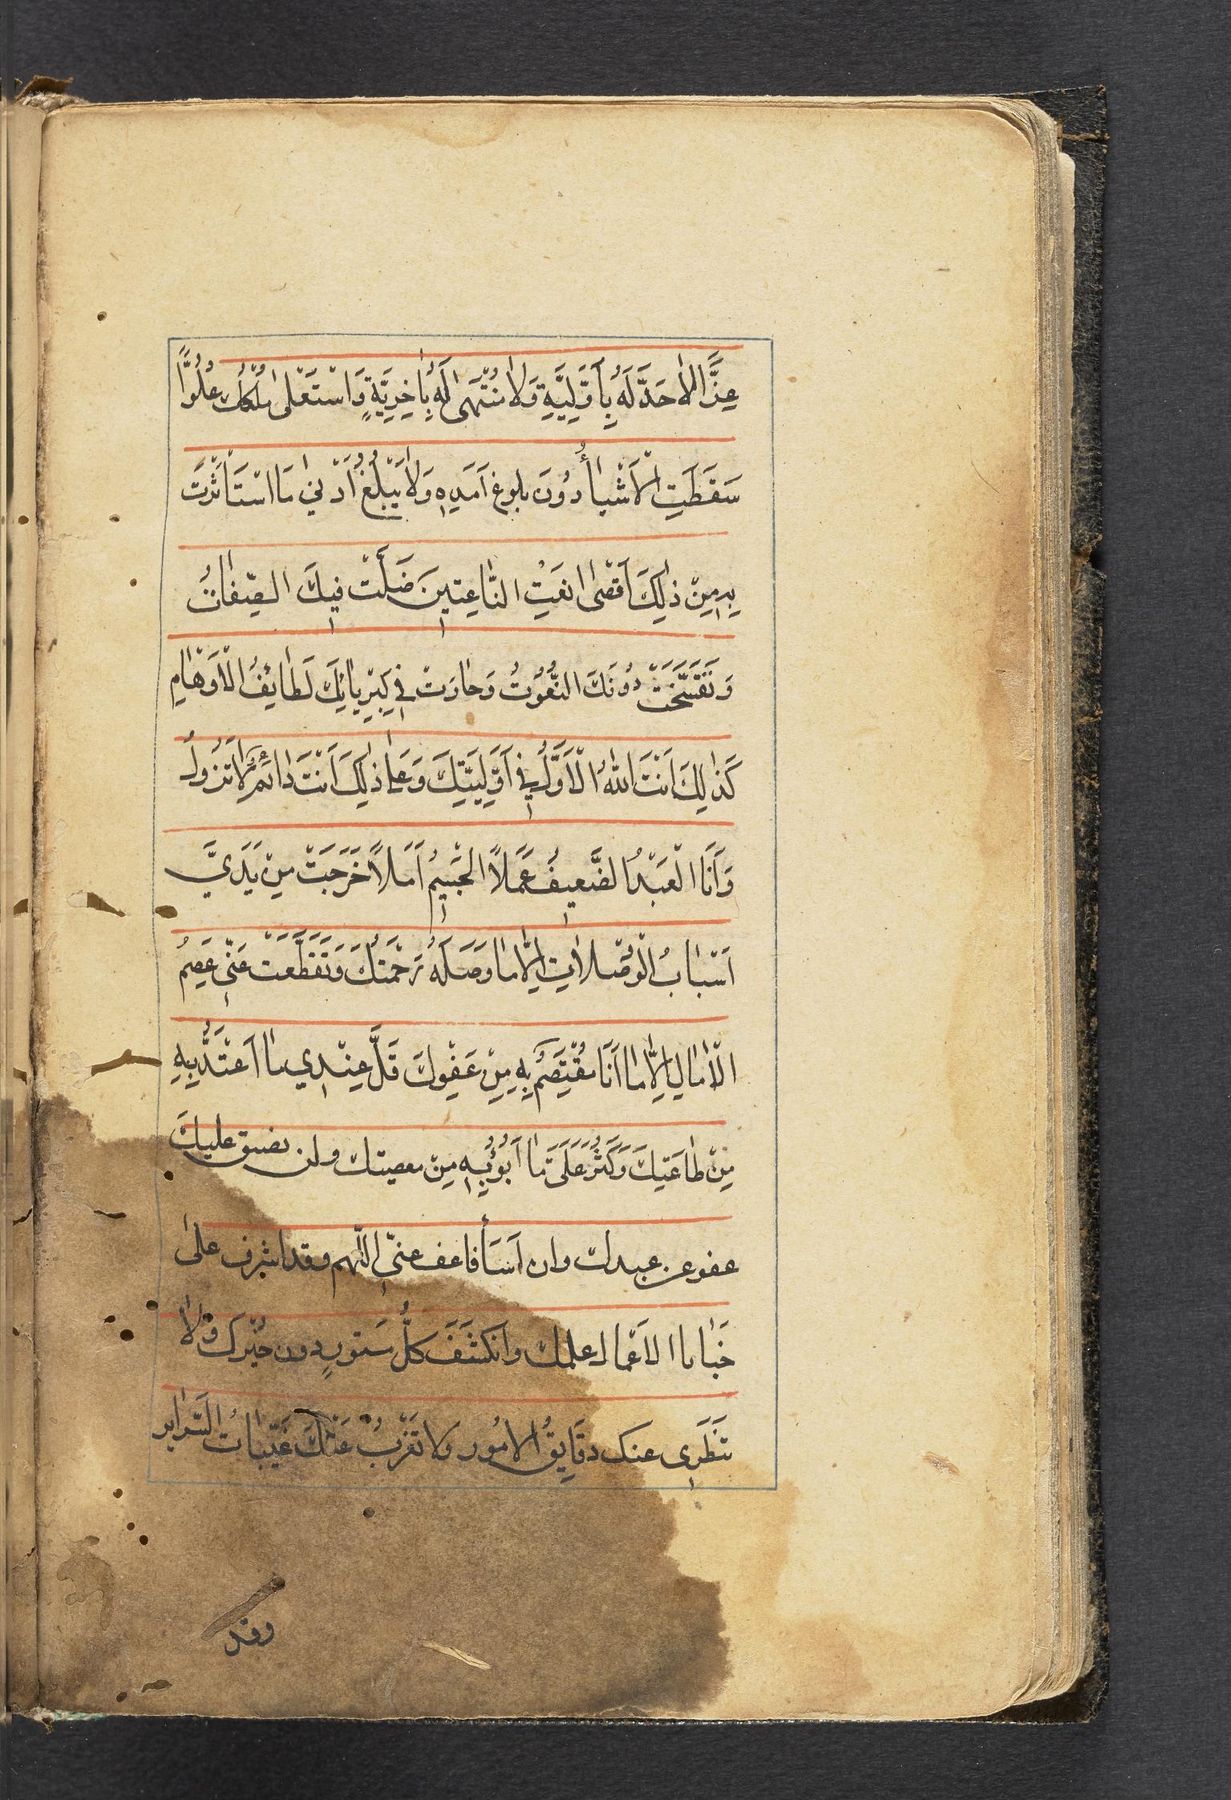 عِزَّا لاٰ حَدَّ لَهُ بِاَوَّلِيَّةٍ وَلاٰ مُنْتَهىٰ لَهُ بِاٰخِرِيَّةٍ وَاسْتَعْلىٰ مُلْكُكَ عُلُوًّا
سَقَطَتِ الْاَشْيٰاۤءُ دُونَ بلوغ اَمَدِهِ وَلاٰ يَبْلُغُ اَدْنىٰ مَا اسْتَأثَرْتَ
بِهِ مِنْ ذٰلِكَ اَقْصىٰ نَعْتِ النّٰاعِتينَ ضَلَّتْ فيكَ الصِّفٰاتُ
وَتَفَسَّخَتْ دُونَكَ النُّعُوتُ وَحٰارَتْ في كِبْرِيٰائِكَ لَطٰائِفُ الْاَوْهٰامِ
كَذٰلِكَ اَنْتَ اللّٰهُ الْاَوَّلُ في اَوَّلِيَّتِكَ وَعَلىٰ ذٰلِكَ اَنْتَ دٰائِمٌ لاٰ تَزُولُ
وَاَنَا الْعَبْدُ الضَّعيفُ عَمَلاً الْجَسيمُ اَمَلاً خَرَجَتْ مِنْ يَدَيَّ
اَسْبٰابُ الْوُصُلاٰتِ اِلّٰا مٰا وَصَلَهُ رَحْمَتُكَ وَتَقَطَّعَتْ عَنّي عِصَمُ
الْاٰمٰالِ اِلّٰا مٰا اَنَا مُعْتَصِمٌ بِهِ مِنْ عَفْوِكَ قَلَّ عِنْدِي مٰا اَعْتَدُّ بِهِ
مِنْ طٰاعَتِكَ وَكَثُرَ عَلَيَّ مٰا اَبُوۤءُ بِهِ مِنْ معصيتك ولن يضيق عليكَ
عفو عن عبدك وان اَسَاۤءَ فاعف عنّي اللّٰهم وقد اشرف علىٰ
خَبٰايا الاَعْمال علمك وانكَشَفَ كلُّ مَستورٍ دون خُبْرك وَلاٰ
تَنْطَوِى عنك دقَايِقُ الامُور ولا تَعْزُبُ عَنْكَ غَيِّبٰاتُ السَّرايِر
وقد